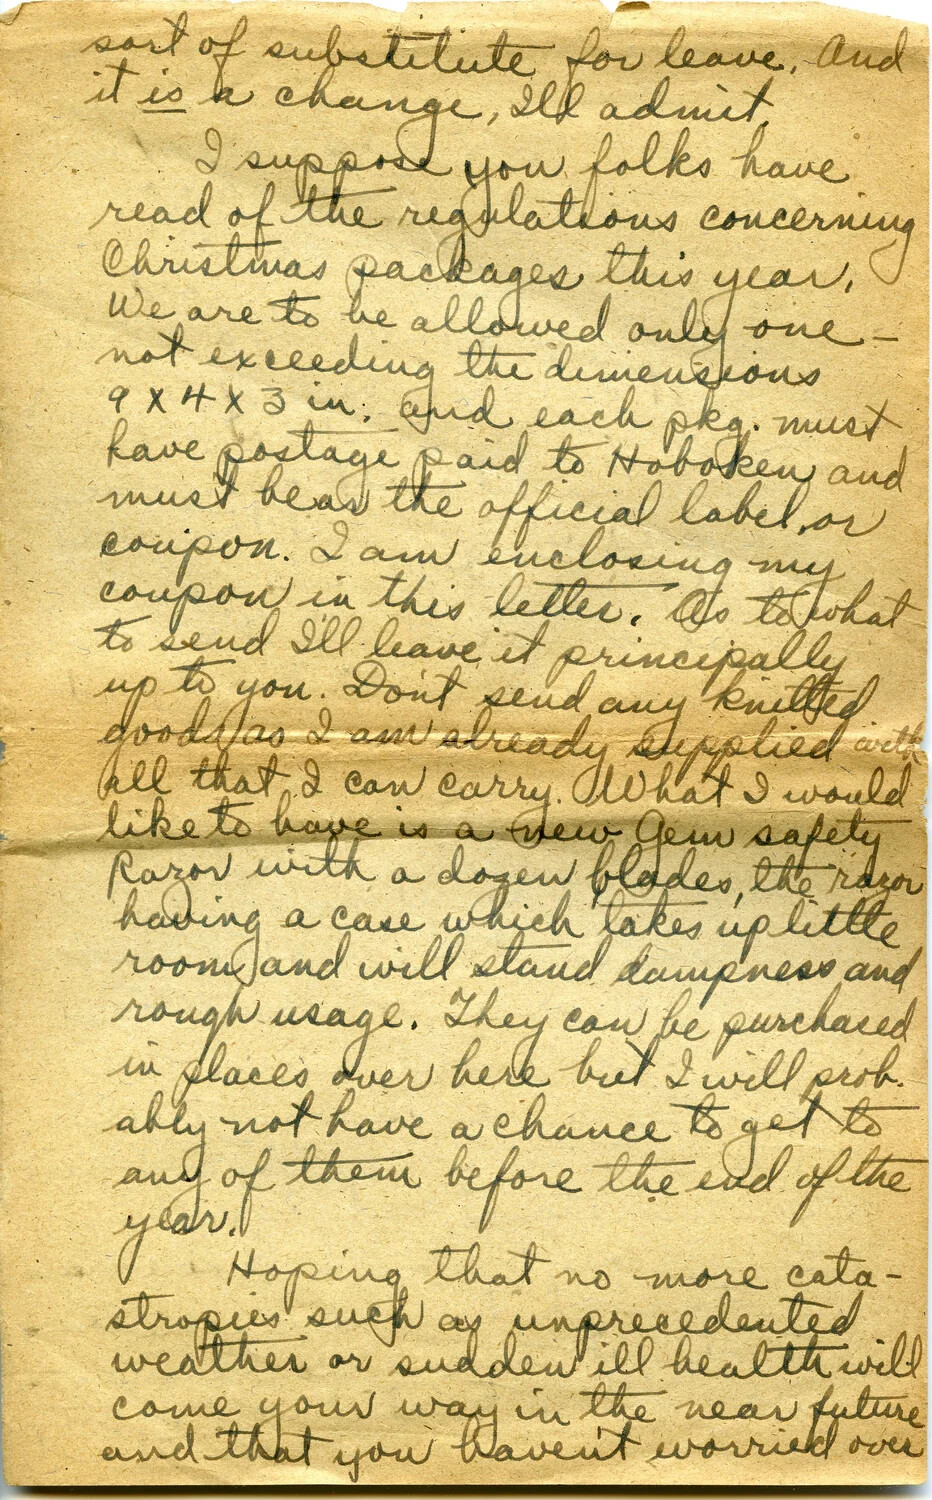 sort of substitute for leave. And
it is a change, I'll admit.
I suppose you folks have
read of the regulations concerning
Christmas packages this year.
We are to be allowed only one -
not exceeding the dimensions
9 x 4 x 3 in. and each pkg. must
have postage paid to Hoboken and
must bear the official label, or
coupon. I am enclosing my
coupon in this letter. As to what
to send I'll leave it principally
up to you. Don't send any knitted
goods as I am already supplied with
all that I can carry. What I would
like to have is a new Gem safety
Razor with a dozen blades, the razor
having a case which takes up little
room and will stand dampness and
rough usage. They can be purchased
in places over here but I will prob-
ably not have a chance to get to
any of them before the end of the
year.
Hoping that no more cata-
stropies such as unprecedented
weather or sudden ill health will
come your way in the near future
and that you haven't worried over